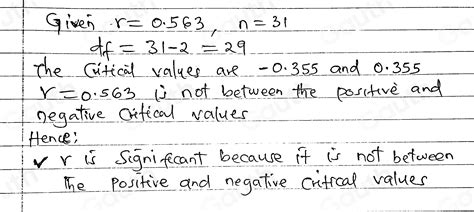 Given r = 0.563, n = 31
df = 31-2 = 29
The Critical values are -0.355 and 0.355
r = 0.563 is not between the positive and
negative critical values
Hence;
✓ r is Significant because it is not between
the positive and negative critical values